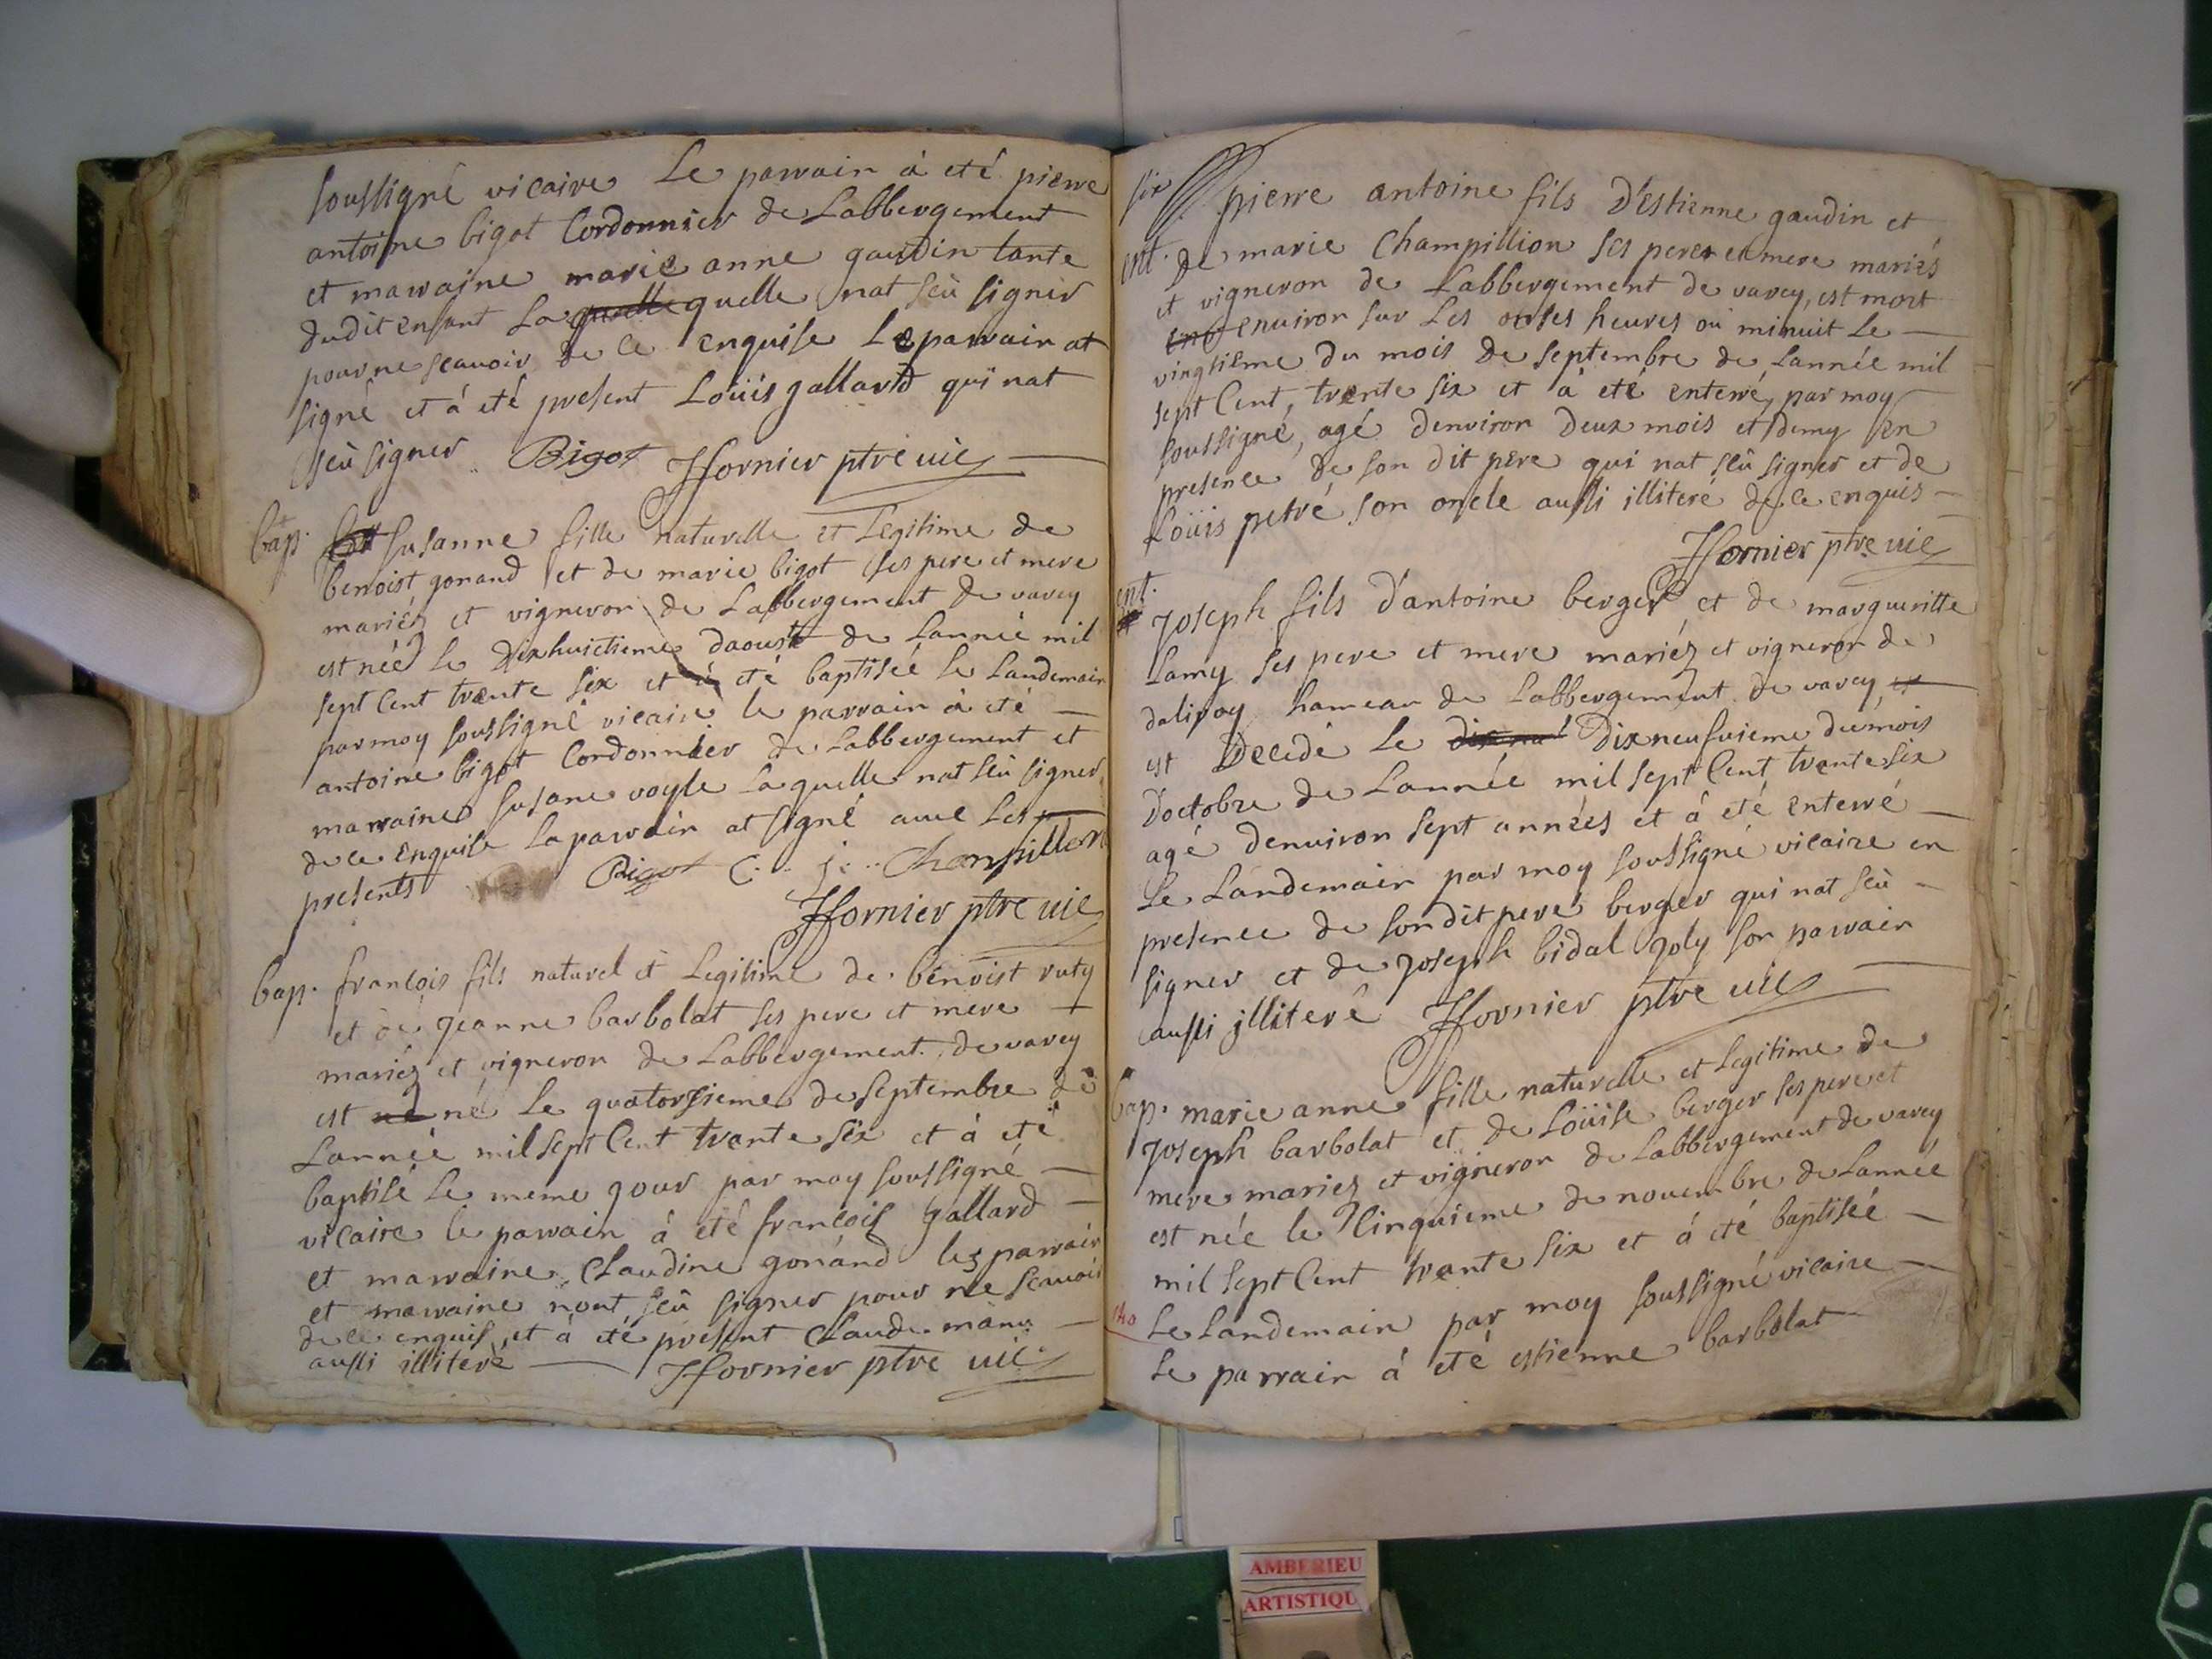 soussigné vicaire Le parrain à eté pierre
antoine bigot Cordonnier de Labbergement
et marraine marie anne gaudin tante
dudit enfant La quelle nat seu signer
pour ne scavoir de ce enquise Le parrain at
signé et à eté present Loüis gallard qui nat
seu signer Bigot ffornier ptre vic
bap. susanne fille naturelle et Legitime de
benoist gonand et de marie bigot ses pere et mere
mariéz et vigneron de Labbergement de varey
est née le dixhuictieme daoust de Lannée mil
sept Cent trante six et à eté baptisée le Landemain
par moy soussigné vicaire le parrain à eté
antoine bigot Cordonnier de Labbergement et
marraine susane voyle Laquelle nat seu signer
de ce enquise La parrain at signé avec Les
presents Bigot C. j. Champillon
ffornier ptre vic
bap. francois fils naturel et Legitime de benoist ruty
et de jeanne barbolat ses pere et mere
mariéz et vigneron de Labbergement de varey
est né Le quatorsieme de septembre de
Lannée mil sept Cent trante six et à eté
baptisé Le meme jour par moy soussigné
vicaire le parrain à eté francois gallard
et marraine Claudine gonand les parrain
et marraine nont seu signer pour ne scavoir
de ce enquis et à eté present Claude
aussi illiteré ffornier ptre vic
six pierre antoine fils d'estienne gaudin et
ent. de marie Champillion ses peres et mere mariés
et vigneron de Labbergement de varey, est mort
environ sur Les onses heures ou minuit Le
vingtiéme du mois de septembre de Lannée mil
sept Cent, trente six et à eté enterré par moy
soussigné, agé denviron deux mois et demy en
presence de son dit pere qui nat seu signer et de
Loüis petré son oncle aussi illiteré de ce enquis
ffornier ptre vic
ent. joseph fils d'antoine berger et de margueritte
Lamy ses pere et mere mariéz et vigneron de
dalivoy hameau de Labbergement de varey
est decedé Le dixneufvieme du mois
doctobre de Lannée mil sept Cent trente six
agé denviron sept années et à eté enterré
Le Landemain par moy soussigné vicaire en
presence de sondit pere berger qui nat seu
signer et de joseph bidal joly son parrain
aussi jlliteré ffornier ptre vic
bap. marie anne fille naturelle et Legitime de
joseph barbolat et de Loüise berger ses pere et
mere mariez et vigneron de Labbergement de varey
est née le Cinquieme de novembre de Lannée
mil sept Cent trente six et à eté baptisée
Le Landemain par moy soussigné vicaire
Le parrain à eté estienne barbolat
AMBERIEU
ARTISTIQU